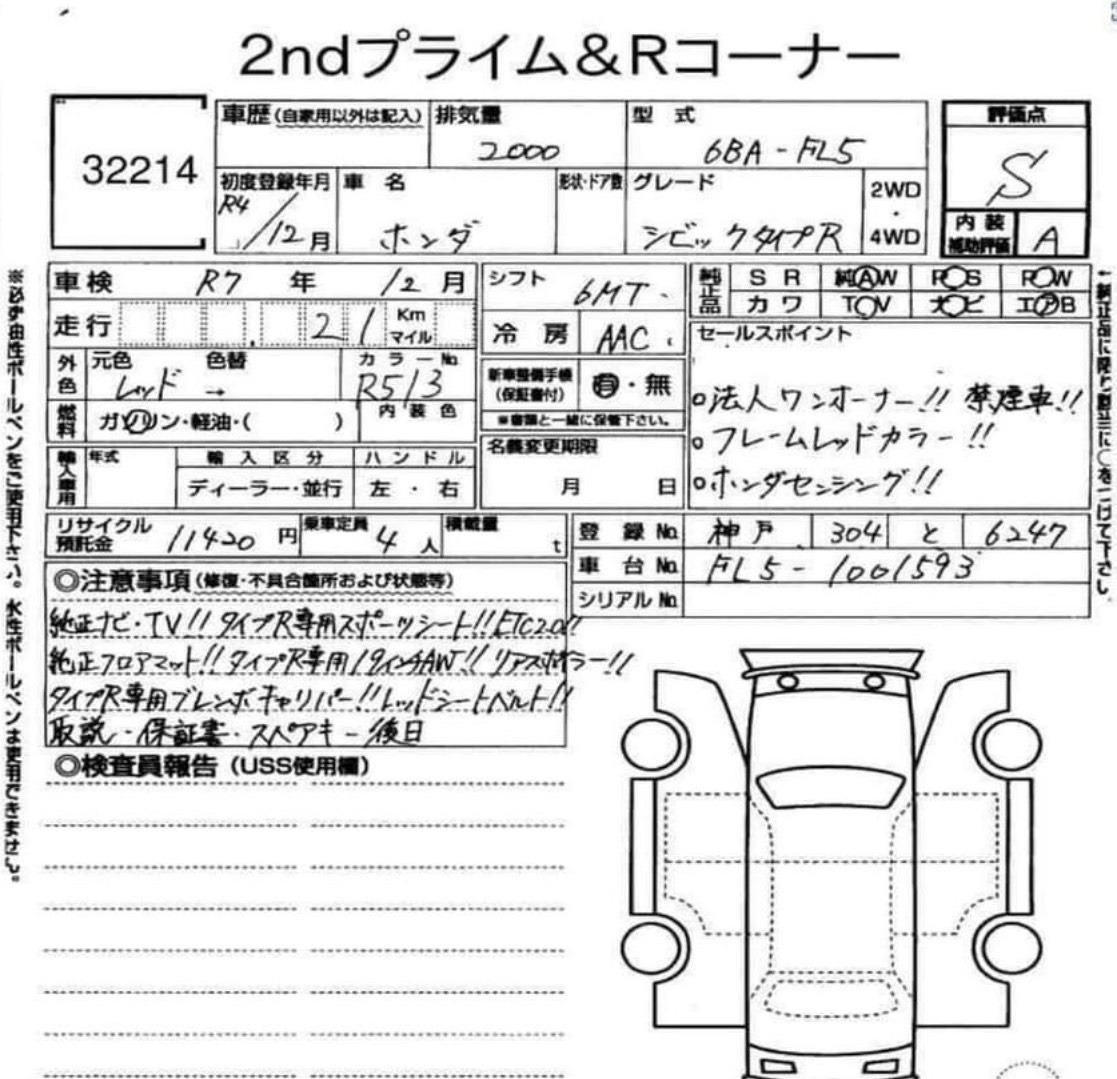 2ndプライム&Rコーナー
32214
車歴(自家用以外は記入) 排気量 型式 評価点
2000 6BA-FL5 S
初度登録年月 車名 形状・ドア数 グレード 2WD・4WD 内装補助評価
R4/12月 ホンダ シビックタイプR A
車検 R7年 12月 シフト 6MT 純正品 SR 純AW PS PW
カワ TV 大ビ エアB
走行 21 Km マイル 冷房 AAC セールスポイント
外色 元色 色替 カラーNo. 新車整備手帳(保証書付) 有・無
レッド → R513 ※書類と一緒に保管下さい。
燃料 ガソリン・軽油・( ) 内装色
○法人ワンオーナー!! 禁煙車!!
○フレームレッドカラー!!
○ホンダセンシング!!
輸入車用 年式 輸入区分 ハンドル 名義変更期限
ディーラー・並行 左・右 月 日
リサイクル預託金 11420円 乗車定員 4人 積載量 t
登録No. 神戸 304 と 6247
車台No. FL5-1001593
シリアルNo.
◎注意事項(修復・不具合箇所および状態等)
純正ナビ・TV!! タイプR専用スポーツシート!! ETC2.0!!
純正フロアマット!! タイプR専用19インチAW!! リアスポイラー!!
タイプR専用ブレンボキャリパー!! レッドシートベルト!!
取説・保証書・スペアキー後日
◎検査員報告(USS使用欄)
※必ず油性ボールペンをご使用下さい。水性ボールペンは使用できません。
←純正品に限り数字に○をつけて下さい